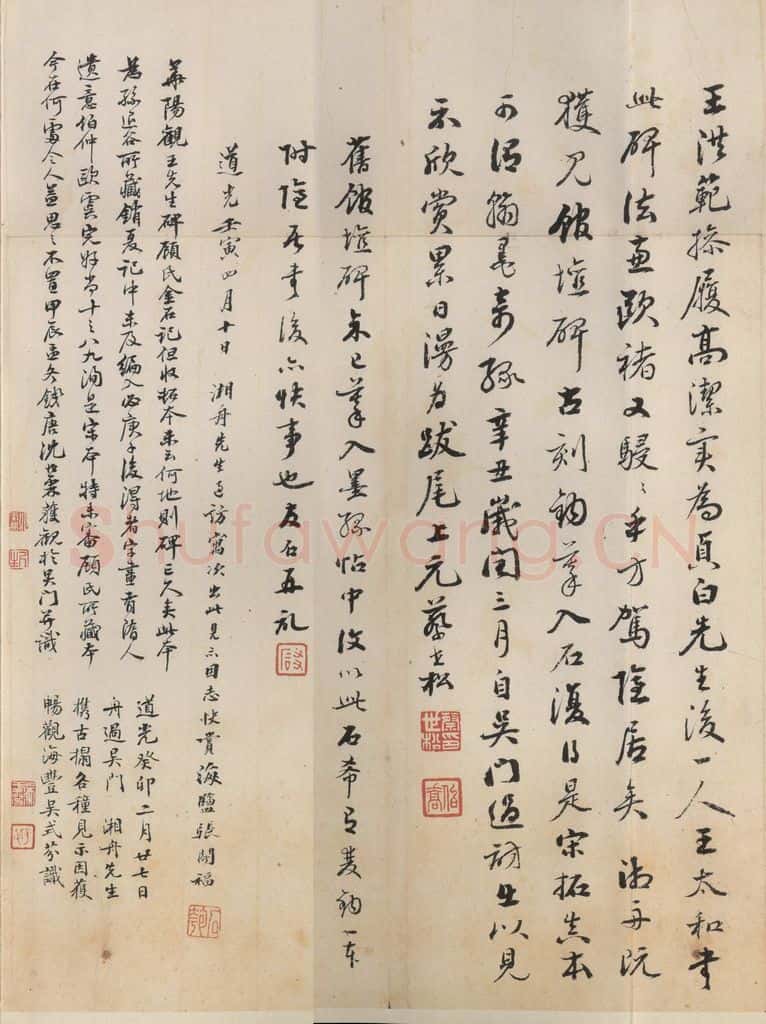 王洪範操履高潔實為貞白先生後一人王太和書
此碑法兼歐褚又駸〻乎方駕隱居矣湘舟既
獲見館壇碑古刻鉤摹入石復得是宋拓真本
可謂翰墨奇緣辛丑歲閏三月自吳門過訪出以見
示欣賞累日漫為跋尾上元蔡世松
舊館壇碑余已摹入墨緣帖中復以此石希有雙鉤一本
附隱居書後亦快事也友石再識
道光壬寅四月十日 湘舟先生過訪寓次出此見示因志快賞海鹽張開福
華陽觀王先生碑顧氏金石記但收拓本未云何地則碑亡久矣此本
為孫退谷所藏銷夏記中未及編入必庚子後得者字畫有渚人
遺意伯仲歐虞完好尚十之八九洵是宋本特未審顧氏所藏本
今在何處令人益思〻不置甲辰孟冬錢唐沈世棻獲觀於吳門并識
道光癸卯二月廿七日
舟過吳門 湘舟先生
攜古搨各種見示因獲
暢觀海豐吳式芬識
Shufawang.CN